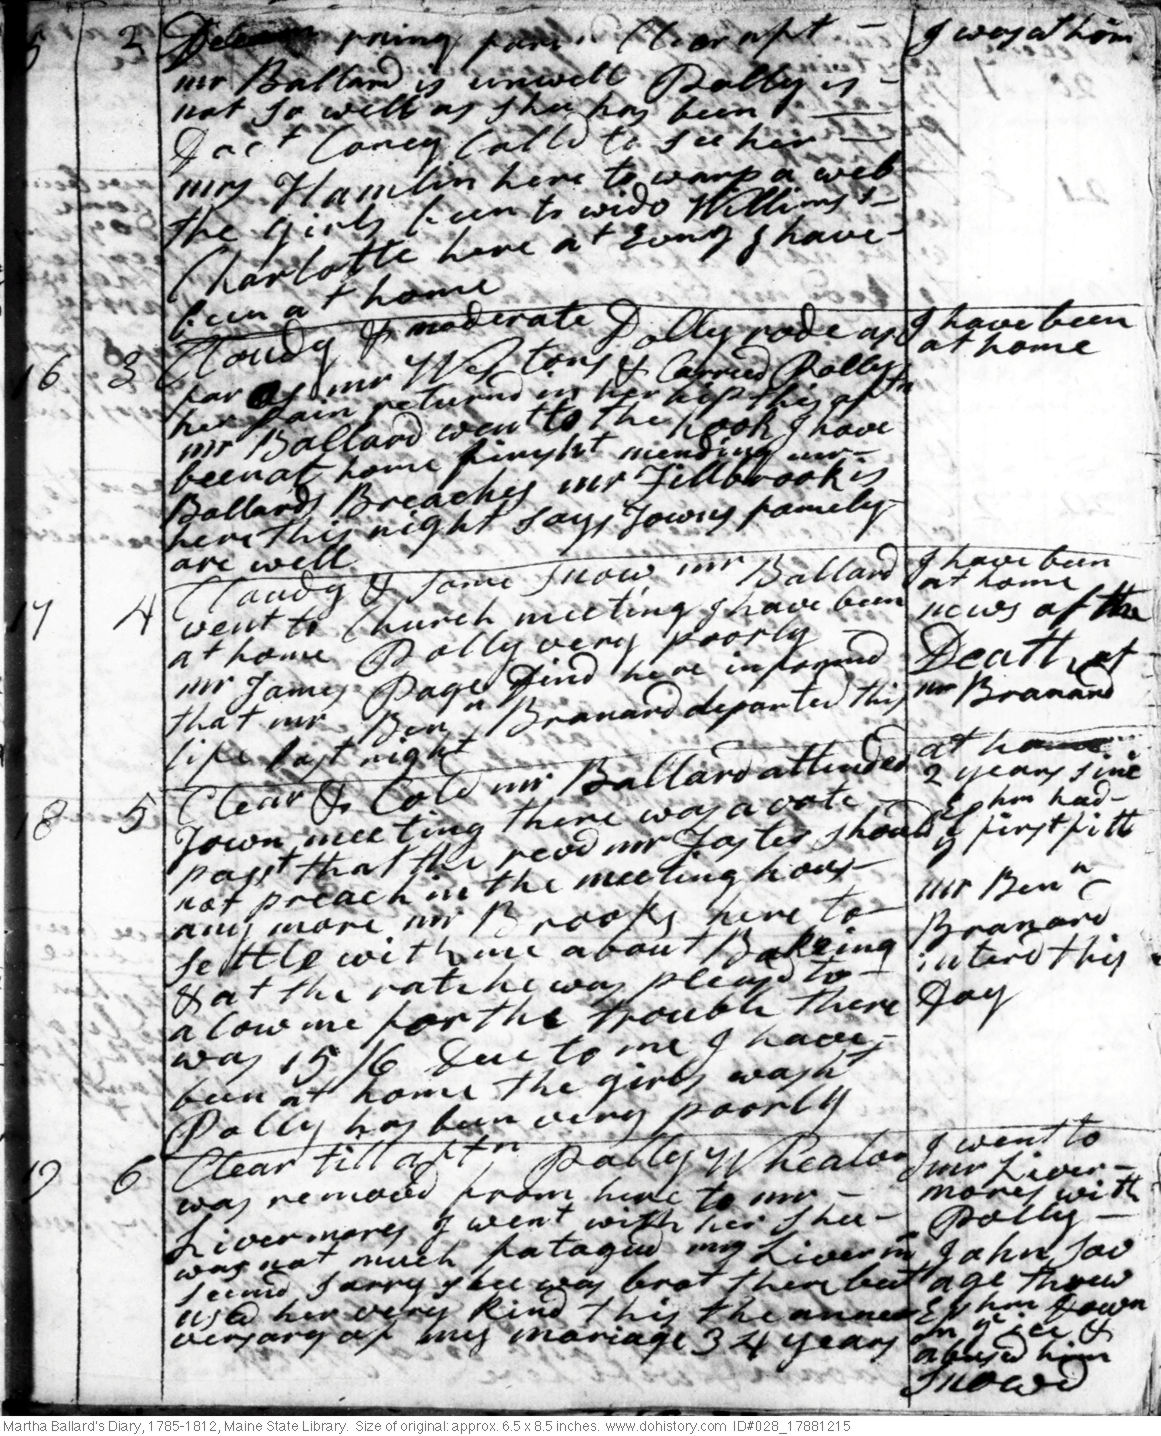 5 2 raining foren Clear aft
mr Ballard is unwell Polly is
not So well as Shee has been
Doct Coney Calld to See her
mrs Hamlin here to warp a web
the girls been to wido Willims
Charlotte here at Evng I have
been at home
I was at hom
16 3 Cloudy & moderate Dolly rode as
far as mr Westons & Carried Polly
her pain returnd in her hip this aftn
mr Ballard went to the hook I have
been at home finisht mending mr
Ballards Breaches mr Fillbrook is
here this night Says Towns family
are well
I have been
at home
17 4 Cloudy & Some Snow mr Ballard
went to Church meeting I have been
at home Polly very poorly
mr James Page Jind here informd
that mr Benn Branard departed this
life last night
I have been
at home
news of the
Death of
mr Branard
18 5 Clear & Cold mr Ballard attended
Town meeting there was a vote
passt that the revd mr Foster should
not preach in the meeting hous
any more mr Brooks here to
Settle with me about Bakeing
& at the rate he was pleasd to
alow me for the trouble there
was 15/6 Due to me I have
been at home the girls washt
Polly has been very poorly
at home
2 years Sinc
Ephm had
ye first fitt
mr Benn
Branard
interd this
Day
19 6 Clear till aftn Polly Wheaton
was removd from here to mr
Livermores I went with her Shee
was not much fatagud mrs Liverm
Seemd Sorry shee was brot there but
usd her very kind this the anne
versary of my mariage 34 years
I went to
mr Liver-
mores with
Polly
John Sav
age threw
Ephm down
on ye ice &
abused him
Snowd
Martha Ballard's Diary, 1785-1812, Maine State Library. Size of original: approx. 6.5 x 8.5 inches. www.dohistory.com ID#028_17881215